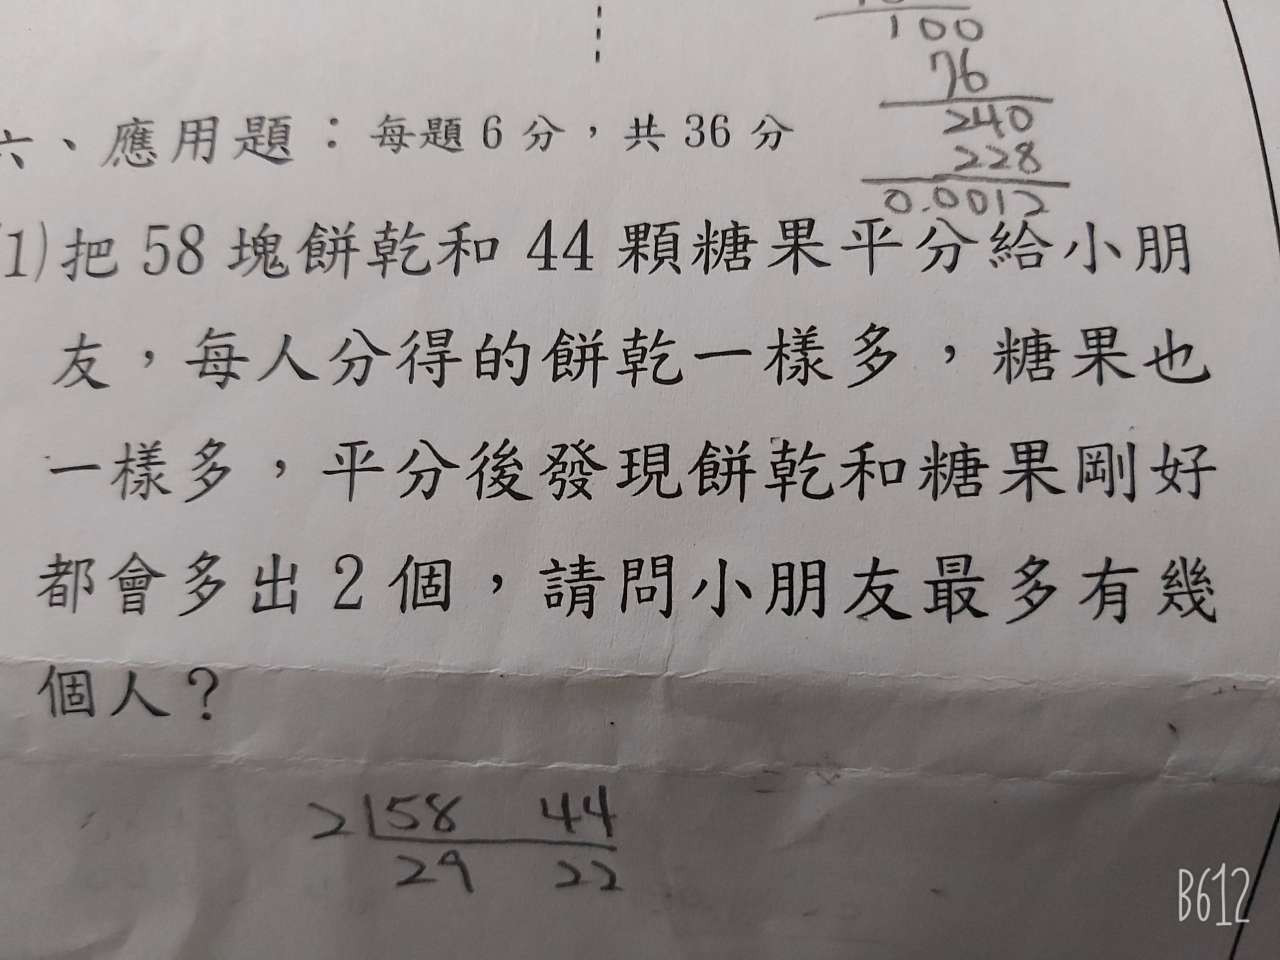 100
76
240
228
0.0012
六、應用題：每題6分，共36分
(1)把58塊餅乾和44顆糖果平分給小朋
友，每人分得的餅乾一樣多，糖果也
一樣多，平分後發現餅乾和糖果剛好
都會多出2個，請問小朋友最多有幾
個人？
2 58 44
29 22
B612